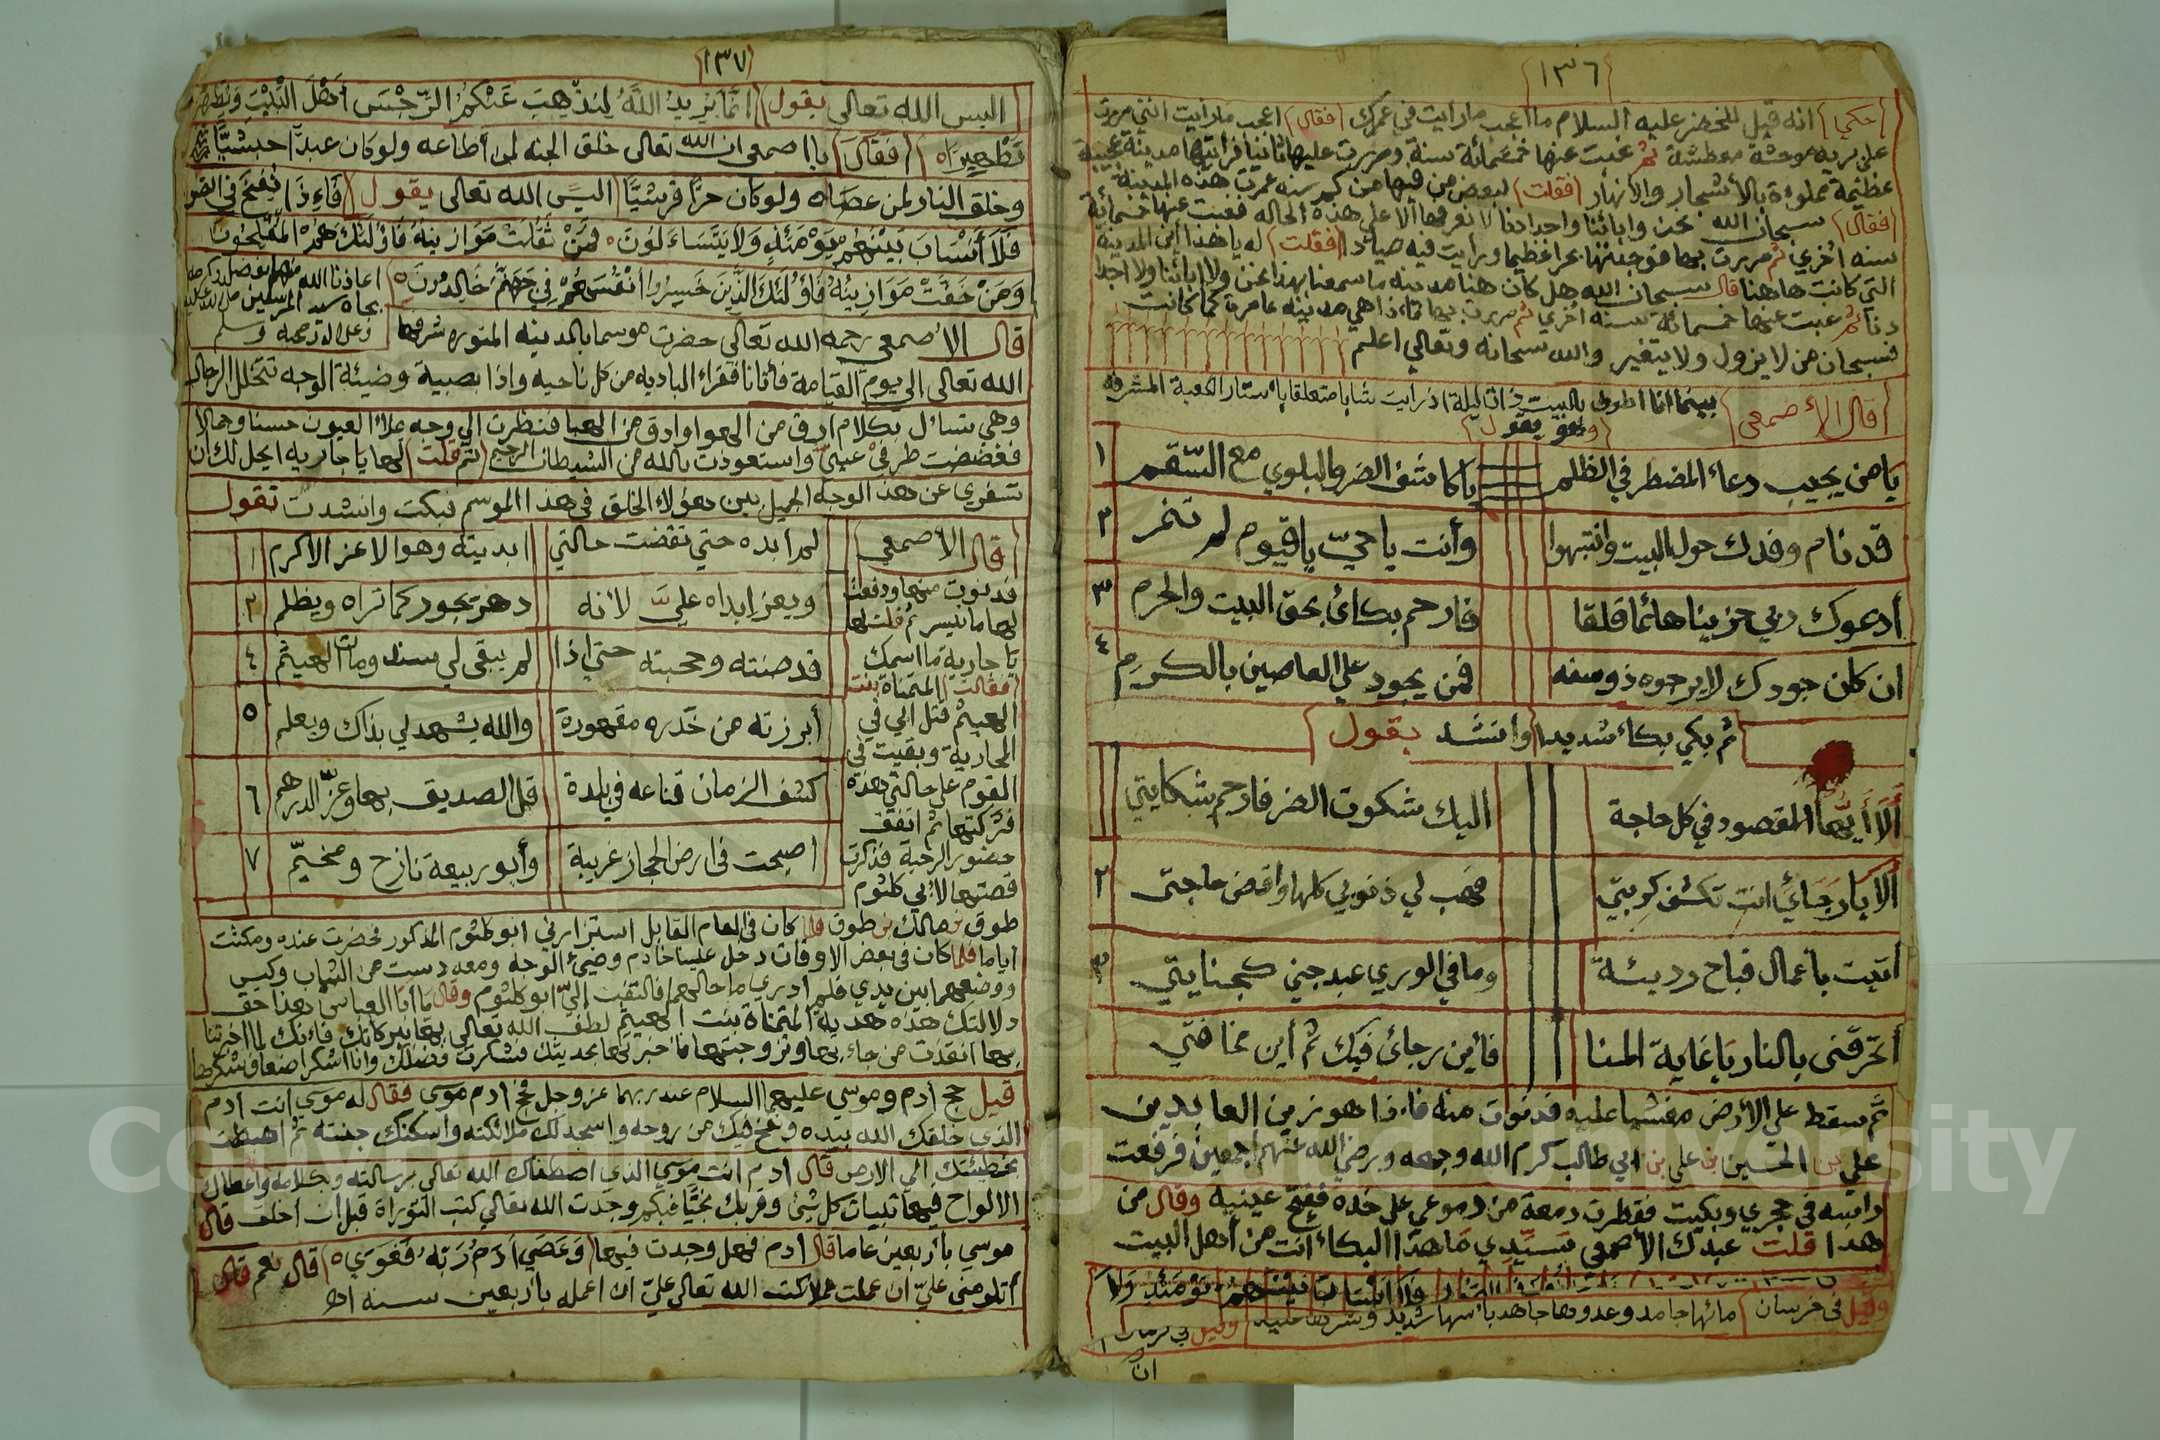 ١٣٦
حكي انه قيل للخضر عليه السلام ما اعجب ما رايت في عمرك فقال اعجب ما رايت انني مررت
على بريه موحشة معطشة ثم غبت عنها خمسمائة سنة ومررت عليها ثانيا فرايتها مدينة عجيبة
عظيمة مملوءة بالأشجار والانهار فقلت لبعض من فيها من كم سنه عمرت هذه المدينة
فقال سبحان الله نحن وابائنا واجدادنا لا نعرفها الا على هذه الحاله فغبت عنها خمسمائة
سنه أخري ثم مررت بها فوجدتها بحرا عظيما ورأيت فيه صيادا فقلت له يا هذا أين المدينة
التي كانت هاهنا قال سبحان الله هل كان هنا مدينه ما سمعنا بهذا نحن ولا ابائنا ولا اجدا
دنا ثم غبت عنها خمسمائة سنه اخري ثم مررت بها فاذا هي مدينه عامرة كما كانت
فسبحان من لا يزول ولا يتغير والله سبحانه وتعالي اعلم
قال الأصمعي بينما انا اطوف بالبيت ذات ليلة اذ رايت شابا متعلقا بأستار الكعبة المشرفة
وهو يقول
يا من يجيب دعاء المضطر في الظلم يا كاشف الضر والبلوي مع السقم ١
قد نام وفدك حول البيت وانتبهوا وأنت يا حيّ يا قيوم لم تنم ٢
أدعوك ربي حزينا هائما قلقا فارحم بكائ بحق البيت والحرم ٣
ان كان جودك لا يرجوه ذو سفه فمن يجود علي العاصين بالكرم ٤
ثم بكي بكاء شديدا وانشد يقول
ألا أيها المقصود في كل حاجة اليك شكوت الضر فارحم شكايتي ١
ألا يا رجائي انت تكشف كربتي فهب لي ذنوبي كلها واقض حاجتي ٢
أتيت بأعمال قباح رديئة وما في الوري عبد جني كجنايتي ٣
أتحرقني بالنار يا غاية المنا فأين رجائ فيك ثم أين مخافتي
ثم سقط على الأرض مغشيا عليه فدنوت منه فاءذا هو زين العابدين
علي بن الحسين بن علي بن ابي طالب كرم الله وجهه ورضي الله عنهم اجمعين فرفعت
راسه في حجري وبكيت فقطرت دمعة من دموعي على خده ففتح عينيه وقال من
هذا قلت عبدك الأصمعي سيدي ما هذا البكاء انت من أهل البيت
وقيل في خرسان مائها جامد وعدوها جاهد بأسها شديد وشرها عتيد وقيل في كرمان
ان
١٣٧
اليس الله تعالى يقول انما يريد الله ليذهب عنكم الرجس أهل البيت ويطهركم
تطهيرا فقال يا اصمعي ان الله تعالى خلق الجنه لمن أطاعه ولو كان عبدا حبشيا
وخلق النار لمن عصاه ولو كان حرا قرشيا اليس الله تعالى يقول فاءذا نفخ في الصور
فلا أنساب بينهم يومئذ ولا يتساءلون فمن ثقلت موازينه فاولئك هم المفلحون
ومن خفت موازينه فاولئك الذين خسروا أنفسهم في جهنم خالدون اعاذنا الله منهم بفضله وكرمه
بجاه سيد المرسلين صلى الله عليه
وعلى اله وصحبه وسلم
قال الأصمعي رحمه الله تعالي حضرت موسما بالمدينه المنوره شرفها
الله تعالى الي يوم القيامة فأتانا فقراء الباديه من كل ناحيه واذا بصبية وضيئة الوجه تتخلل الرجال
وهي تسأل بكلام ارق من الهوا وادق من الهبا فنظرت الي وجه ملاء العيون حسنا وجمالا
فغضضت طرفي عيني واستعوذت بالله من الشيطان الرجيم ثم قلت لها يا جاريه ايحل لك ان
تسفري عن هذا الوجه الجميل بين هؤلاء الخلق في هذا الموسم فبكت وانشدت تقول
لم أبده حتي تقضت حالتي ابديته وهو الاعز الاكرم ١
ويعز ابداه عليّ لانه دهر يجود كما تراه ويظلم ٢
قد صنته وحجبته حتي اذا لم يبقى لي سند ومات الهيثم ٤
أبرزته من خدره مقهورة والله يشهد لي بذاك ويعلم ٥
كشف الزمان قناعه في بلدة قل الصديق بها وعزّ الدرهم ٦
اصبحت في ارض الحجاز غريبة وأبو ربيعة نازح ومخيّم ٧
قال الأصمعي
فدنوت منها ودفعت
لها ما تيسر ثم قلت لها
يا جارية ما اسمك
فقالت المتمناة بنت
الهيثم قتل ابي في
المحاربة وبقيت في
القوم على حالتي هذه
فتركتها ثم اتفق
حضور الرحبة فذكرت
قصتها لأبي كلثوم
طوق بن مالك بن طوق فلما كان في العام القابل استزارني ابو كلثوم المذكور فحضرت عنده ومكثت
اياما فلما كان في بعض الاوقات دخل علينا خادم وضيئ الوجه ومعه دست من الثياب وكيس
ووضعهما بين يدي فلم أدري ما حالهما فالتفت اليّ ابو كلثوم وقال يا أبا العباس هذا حق
دلالتك هذه هدية المتمناة بنت الهيثم لطف الله تعالي بها ببركاتك فاءنك لما اخبرتنا
بها انقذت من جاء بها وتزوجتها فاخبرتها بحديثك فشكرت فضلك وانا اشكر اضعاف شكرها
قيل حج أدم وموسي عليهما السلام عند ربهما عز وجل فحج ادم موسى فقال له موسى انت ادم
الذي خلقك الله بيده ونفخ فيك من روحه واسجد لك ملائكته وأسكنك جنته ثم اهبطت
بخطيئتك الي الارض قال أدم انت موسي الذي اصطفاك الله تعالي برسالته وبكلامه واعطاك
الالواح فيها تبيان كل شيئ وقربك نجيا فبكم وجدت الله تعالي كتب التوراة قبل ان اخلق قال
موسي بأربعين عاما قال أدم فهل وجدت فيها وعصي أدم ربه فغوي قال نعم قال
أتلومني عليّ ان عملت عملا كتب الله تعالي عليّ ان اعمله بأربعين سنه اهـ